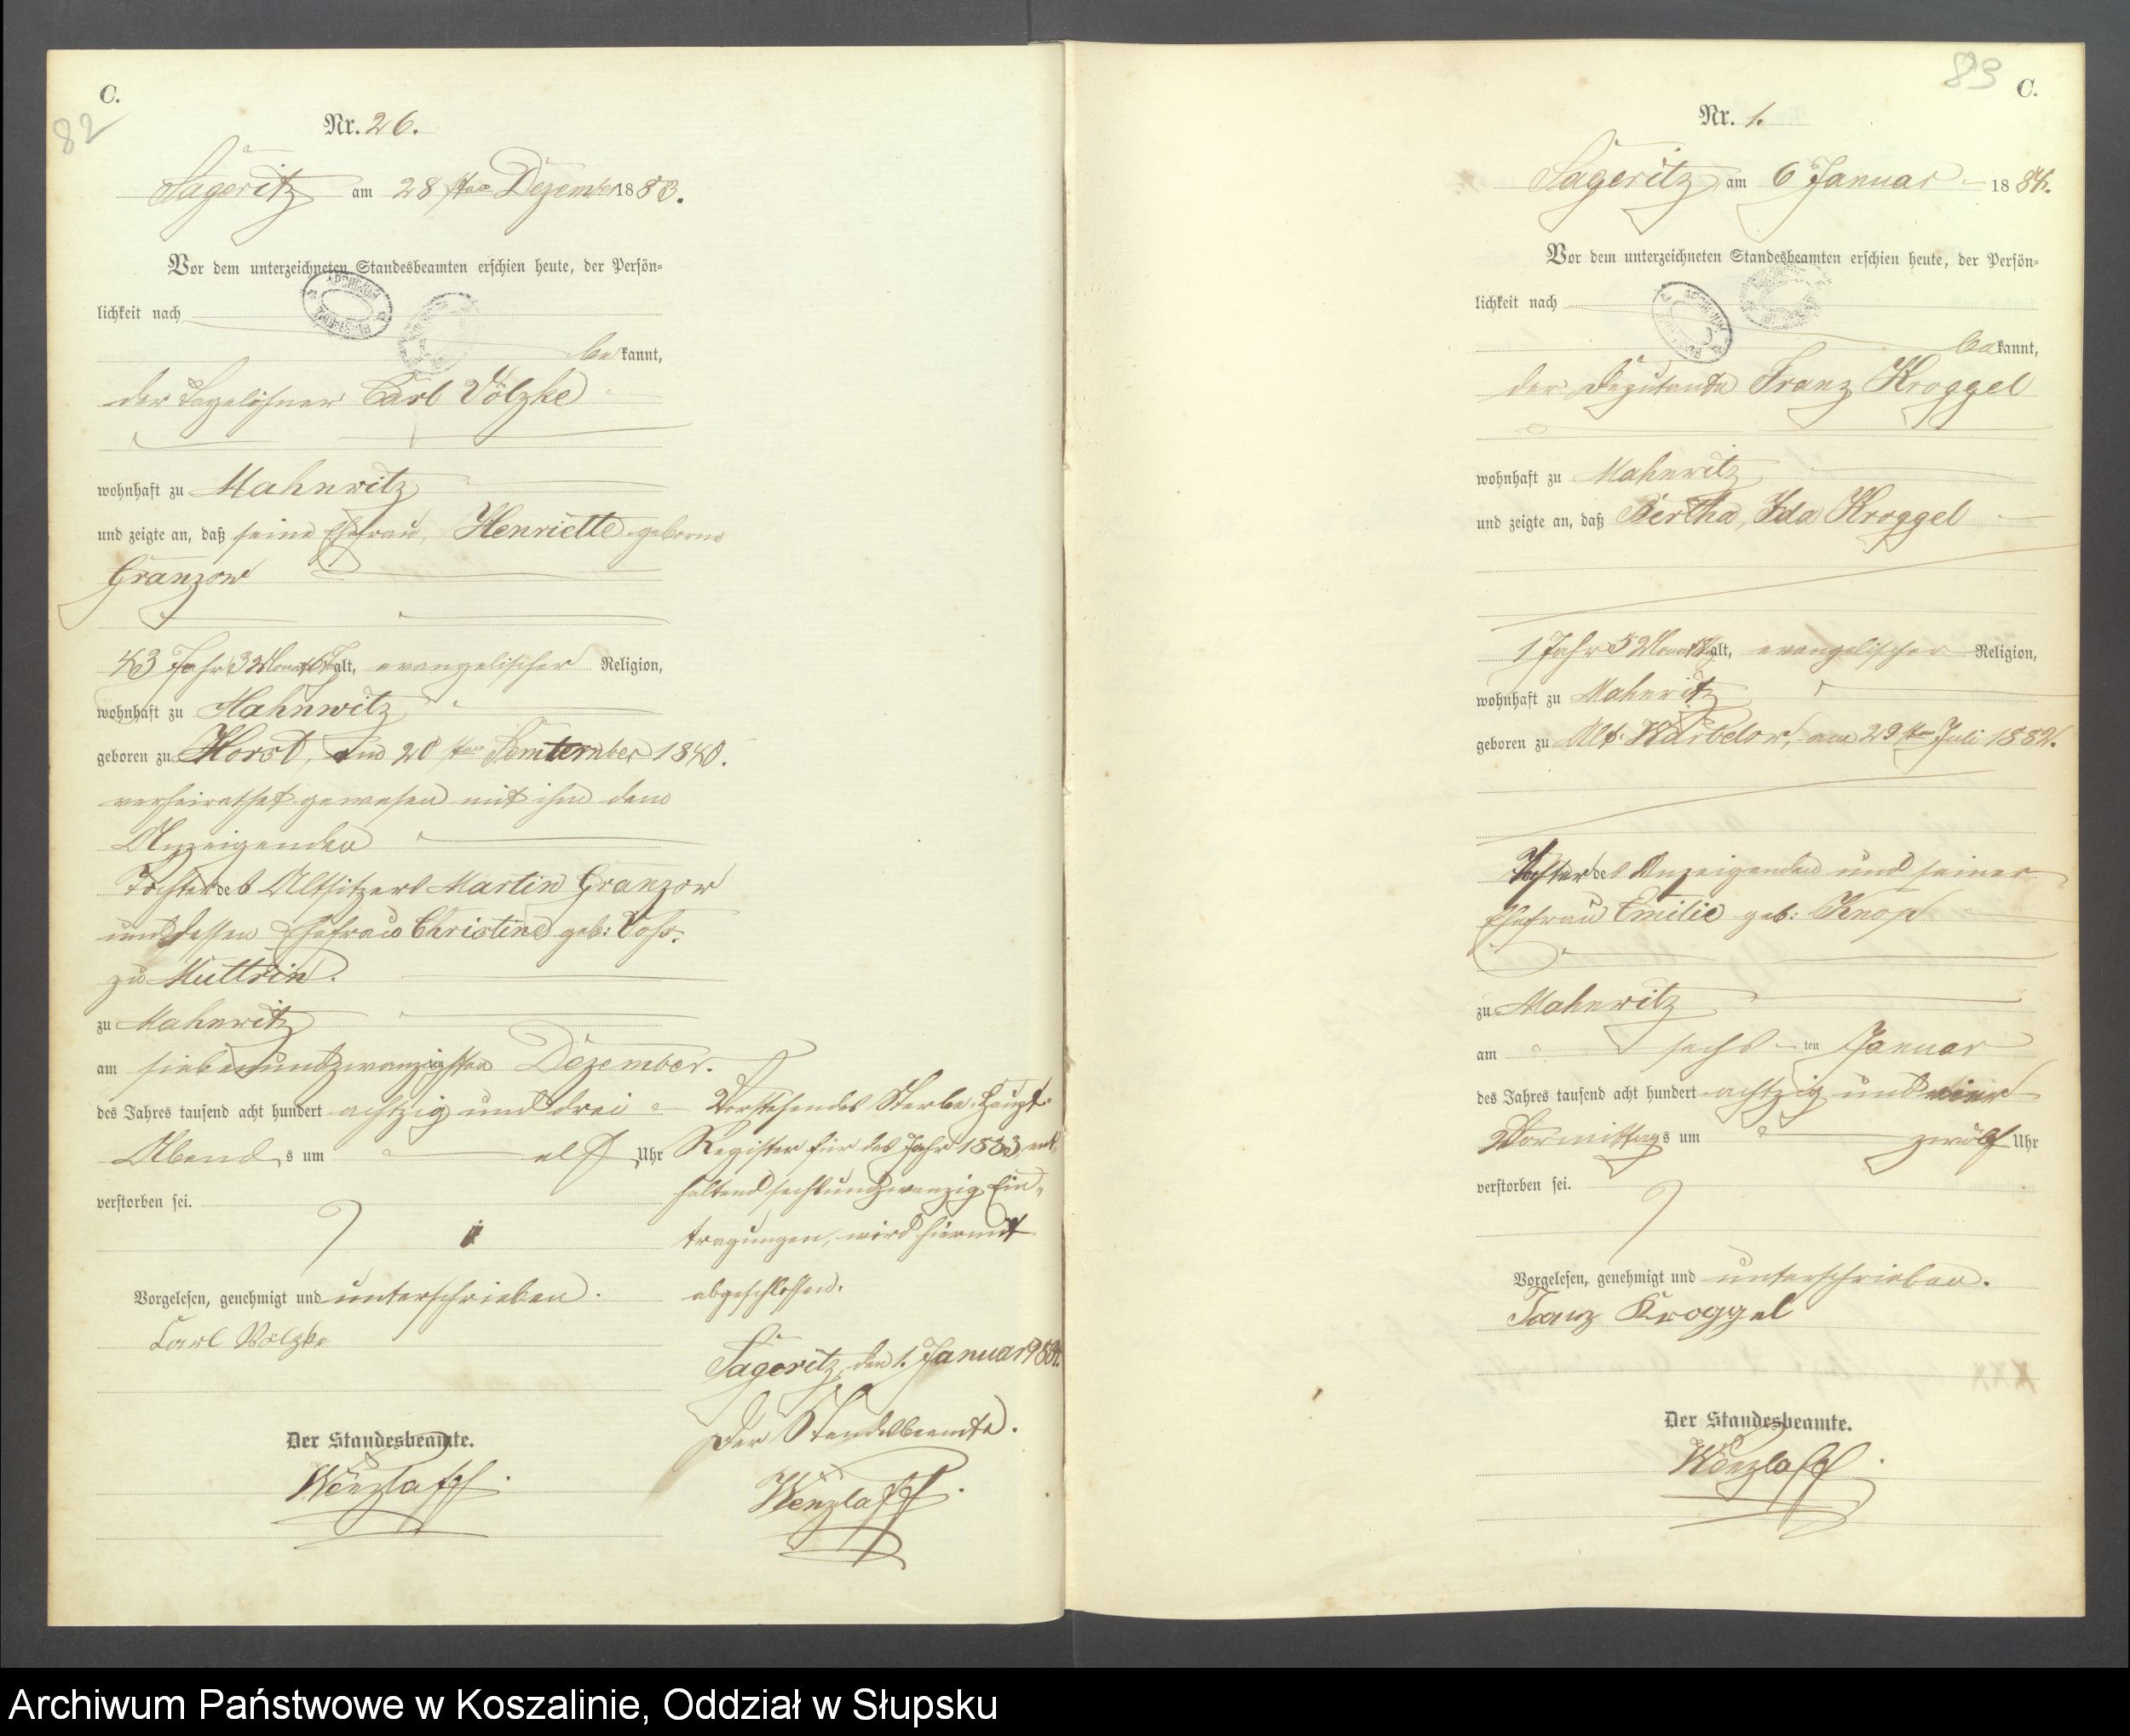 C.
82
Nr. 26.
Sageritz am 28sten Dezember 1883.
Vor dem unterzeichneten Standesbeamten erschien heute, der Persön-
lichkeit nach
bekannt,
der Tagelöhner Carl Völzke
wohnhaft zu Mahnwitz
und zeigte an, daß seine Ehefrau, Henriette geborne
Granzow
43 Jahr 3 Monat alt, evangelischer Religion,
wohnhaft zu Mahnwitz
geboren zu Horst, am 20sten September 1840.
verheirathet gewesen mit ihm dem
Anzeigenden
Tochter des Altsitzers Martin Granzow
und dessen Ehefrau Christine geb: Voß.
zu Muttrin.
zu Mahnwitz
am siebenundzwanzigsten Dezember.
des Jahres tausend acht hundert achtzig und drei
Abends um elf Uhr
verstorben sei.
Vorgelesen, genehmigt und unterschrieben.
Carl Völzke
Der Standesbeamte.
Wenzlaff.
Vorstehendes Sterbe-Haupt-
Register für das Jahr 1883, ent-
haltend sechsundzwanzig Ein-
tragungen, wird hiermit
abgeschlossen.
Sageritz, den 1. Januar 1884.
Der Standesbeamte.
Wenzlaff.
83
C.
Nr. 1.
Sageritz am 6 Januar 1884.
Vor dem unterzeichneten Standesbeamten erschien heute, der Persön-
lichkeit nach
bekannt,
der Deputante Franz Kroggel
wohnhaft zu Mahnwitz
und zeigte an, daß Bertha, Ida Kroggel
1 Jahr 5 Monat alt, evangelischer Religion,
wohnhaft zu Mahnwitz
geboren zu Alt-Warbelow, am 29sten Juli 1882.
Tochter des Anzeigenden und seiner
Ehefrau Emilie geb: Knop
zu Mahnwitz
am sechsten Januar
des Jahres tausend acht hundert achtzig und vier
Vormittags um zwölf Uhr
verstorben sei.
Vorgelesen, genehmigt und unterschrieben.
Franz Kroggel
Der Standesbeamte.
Wenzlaff.
Archiwum Państwowe w Koszalinie, Oddział w Słupsku